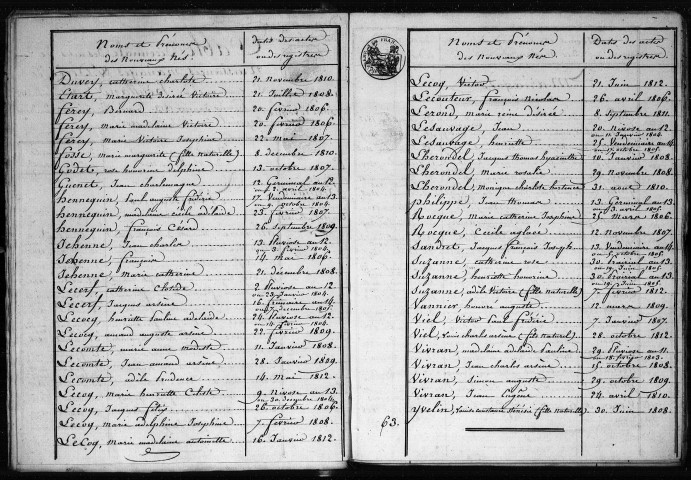 Noms et Prénoms
des Nouveaux Nés.
Dates des actes
ou des registres
Duvey, catherine charlote 21. novembre 1810.
Etart, marguerite désirée Victoire 21. Juillet 1808.
ferey, Bernard 20. février 1806.
ferey, marie madelaine Victoire 20. février 1806.
ferey, marie Victoire Josephine 22. mai 1807.
fosse, marie marguerite (fille naturelle) 8. décembre 1810.
Godet, rose honorine delphine 13. octobre 1807.
Guenet, Jean charlemagne 12. Germinal an 12
ou 2. avril 1804.
hennequin, paul auguste frédéric 17. Vendemiaire an 13
ou 9. octobre 1804.
hennequin, madelaine cécile adelaide 25. février 1807.
hennequin, françois César 26. septembre 1809.
Jehenne, Jean charles 13. Pluviose an 12
ou 3. février 1804.
Jehenne, françois 14. mai 1806.
Jehenne, marie catherine 21. décembre 1808.
Lecerf, catherine Clotilde 2. Pluviose an 12
ou 23. Janvier 1804.
Lecerf, Jacques arsène 16. frimaire an 14
ou 7. décembre 1805.
Lecocq, henriette pauline adelaide 24. Pluviose an 12
ou 14. février 1804.
Lecocq, amand auguste arsène 22. février 1809.
Lecomte, marie anne modeste 11. Janvier 1808.
Lecomte, Jean amand arsène 28. Janvier 1809.
Lecomte, adèle prudence 14. mai 1812.
Lecoq, marie henriette Celeste 9. nivose an 13
ou 30. décembre 1804.
Lecoq, Jacques 26. octobre 1806.
Lecoq, marie adelphine Josephine 7. février 1808.
Lecoq, marie madelaine antoinette 16. Janvier 1812.
Noms et Prénoms
des Nouveaux Nés.
Dates des actes
ou des registres
Lecoq, Victor 21. Juin 1812.
Lecouteur, françois nicolas 26. avril 1806.
Lerond, marie reine désirée 8. septembre 1811.
Lesauvage, Jean 20. Nivose an 12
ou 11. Janvier 1804.
Lesauvage, henriette 25. Vendemiaire an 14
ou 17. octobre 1805.
Lherondel, Jacques thomas hyacinthe 10. Janvier 1808.
Lherondel, marie rosalie 29. novembre 1808.
Lherondel, monique charlote hortence 31. aout 1810.
philippe, Jean thomas 13. Germinal an 13
ou 3. avril 1805.
Rocque, marie catherine Josephine 25. mars 1806.
Rocque, Cécile aglaée 12. novembre 1807.
Sandret, Jacques françois Joseph 13. Vendemiaire an 14
ou 5. octobre 1805.
Suzanne, catherine rose 30. Prairial an 13
ou 19. Juin 1805.
Suzanne, henriette honorine 30. Prairial an 13
ou 19. Juin 1805.
Suzanne, adèle Victoire (fille naturelle) 7. février 1812.
Vannier, honoré auguste 12. mars 1809.
Viel, Victor paul frédéric 7. Janvier 1807.
Viel, Louis charles arsène (fils naturel) 28. octobre 1812.
Vivran, madelaine adelaide pauline 29. Pluviose an 11
ou 18. février 1803.
Vivran, Jean charles arsène 15. octobre 1808.
Vivran, Simon auguste 29. octobre 1809.
Vivran, Jean Eugène 24. avril 1810.
Yvelin, Louise constance (fille naturelle) 30. Juin 1808.
63.